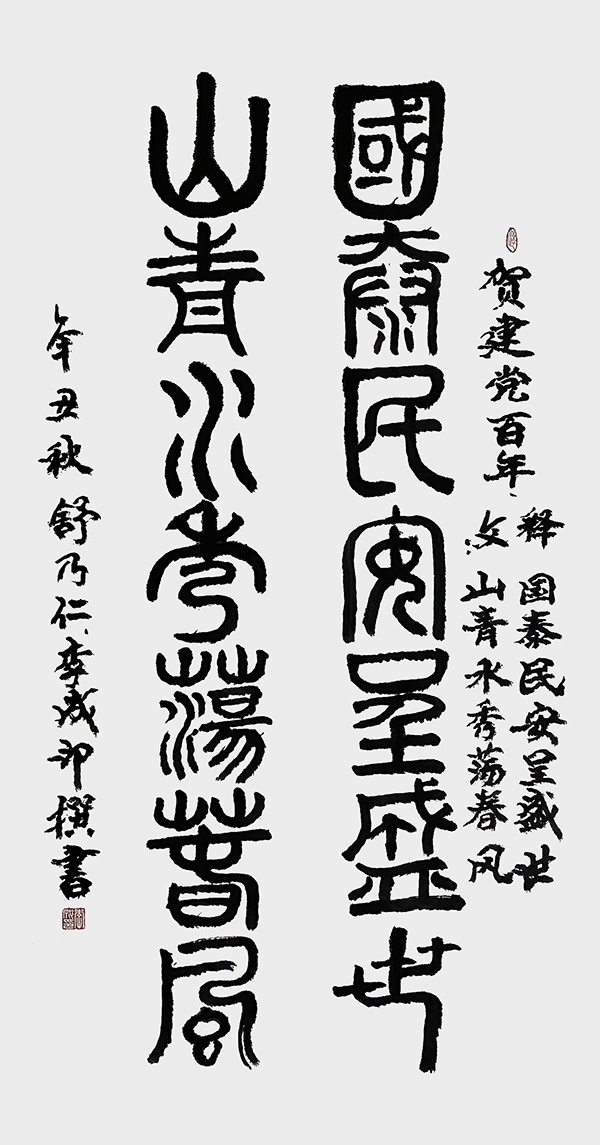 贺建党百年
释文：
国泰民安呈盛世
山青水秀荡春风
國泰民安呈盛世
山青水秀蕩春風
辛丑秋 舒乃仁、李成印撰書